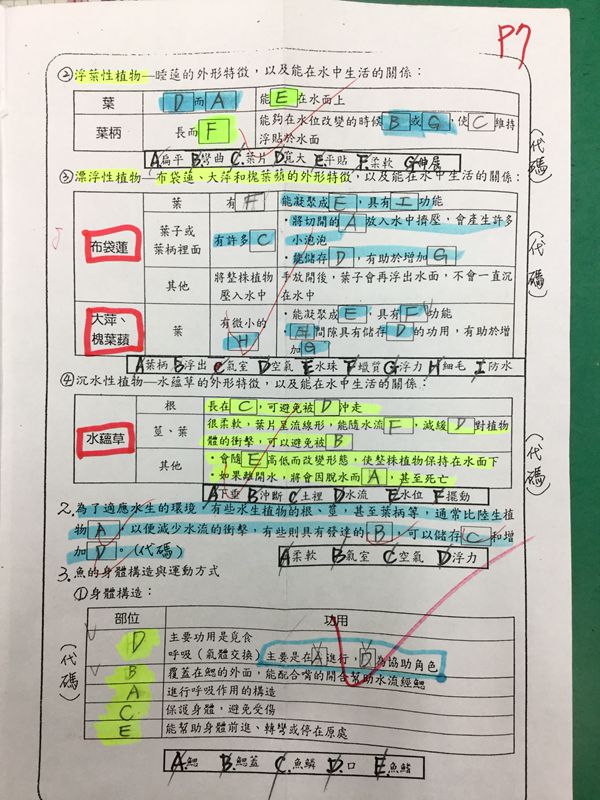 P7
②浮葉性植物—睡蓮的外形特徵，以及能在水中生活的關係：
葉 D而A 能E在水面上
葉柄 長而F 能夠在水位改變的時候B或G，使C維持
浮貼於水面
(代碼)
A扁平 B彎曲 C.葉片 D寬大 E平貼 F柔軟 G伸展
③漂浮性植物—布袋蓮、大萍和槐葉蘋的外形特徵，以及能在水中生活的關係：
布袋蓮
葉 有F 能凝聚成E，具有I功能
葉子或
葉柄裡面 有許多C
・將切開的A放入水中擠壓，會產生許多
小泡泡
・能儲存D，有助於增加G
其他 將整株植物
壓入水中 手放開後，葉子會再浮出水面，不會一直沉
在水中
大萍、
槐葉蘋
葉 有微小的
H
・能凝聚成E，具有F功能
・H間隙具有儲存D的功用，有助於增
加G
(代碼)
A葉柄 B浮出 C氣室 D空氣 E水珠 F蠟質 G浮力 H細毛 I防水
④沉水性植物—水蘊草的外形特徵，以及能在水中生活的關係：
水蘊草
根 長在C，可避免被D沖走
莖、葉 很柔軟，葉片呈流線形，能隨水流F，減緩D對植物
體的衝擊，可以避免被B
其他 ・會隨E高低而改變形態，使整株植物保持在水面下
・如果離開水，將會因脫水而A，甚至死亡
(代碼)
A下垂 B沖斷 C土裡 D水流 E水位 F擺動
2.為了適應水生的環境，有些水生植物的根、莖，甚至葉柄等，通常比陸生植
物A，以便減少水流的衝擊，有些則具有發達的B，可以儲存C和增
加D。(代碼)
A柔軟 B氣室 C空氣 D浮力
3.魚的身體構造與運動方式
①身體構造：
部位 功用
D 主要功用是覓食
呼吸（氣體交換）主要是在A進行，D為協助角色
B 覆蓋在鰓的外面，能配合嘴的開合幫助水流經鰓
A 進行呼吸作用的構造
C 保護身體，避免受傷
E 能幫助身體前進、轉彎或停在原處
(代碼)
A.鰓 B.鰓蓋 C.魚鱗 D.口 E.魚鰭